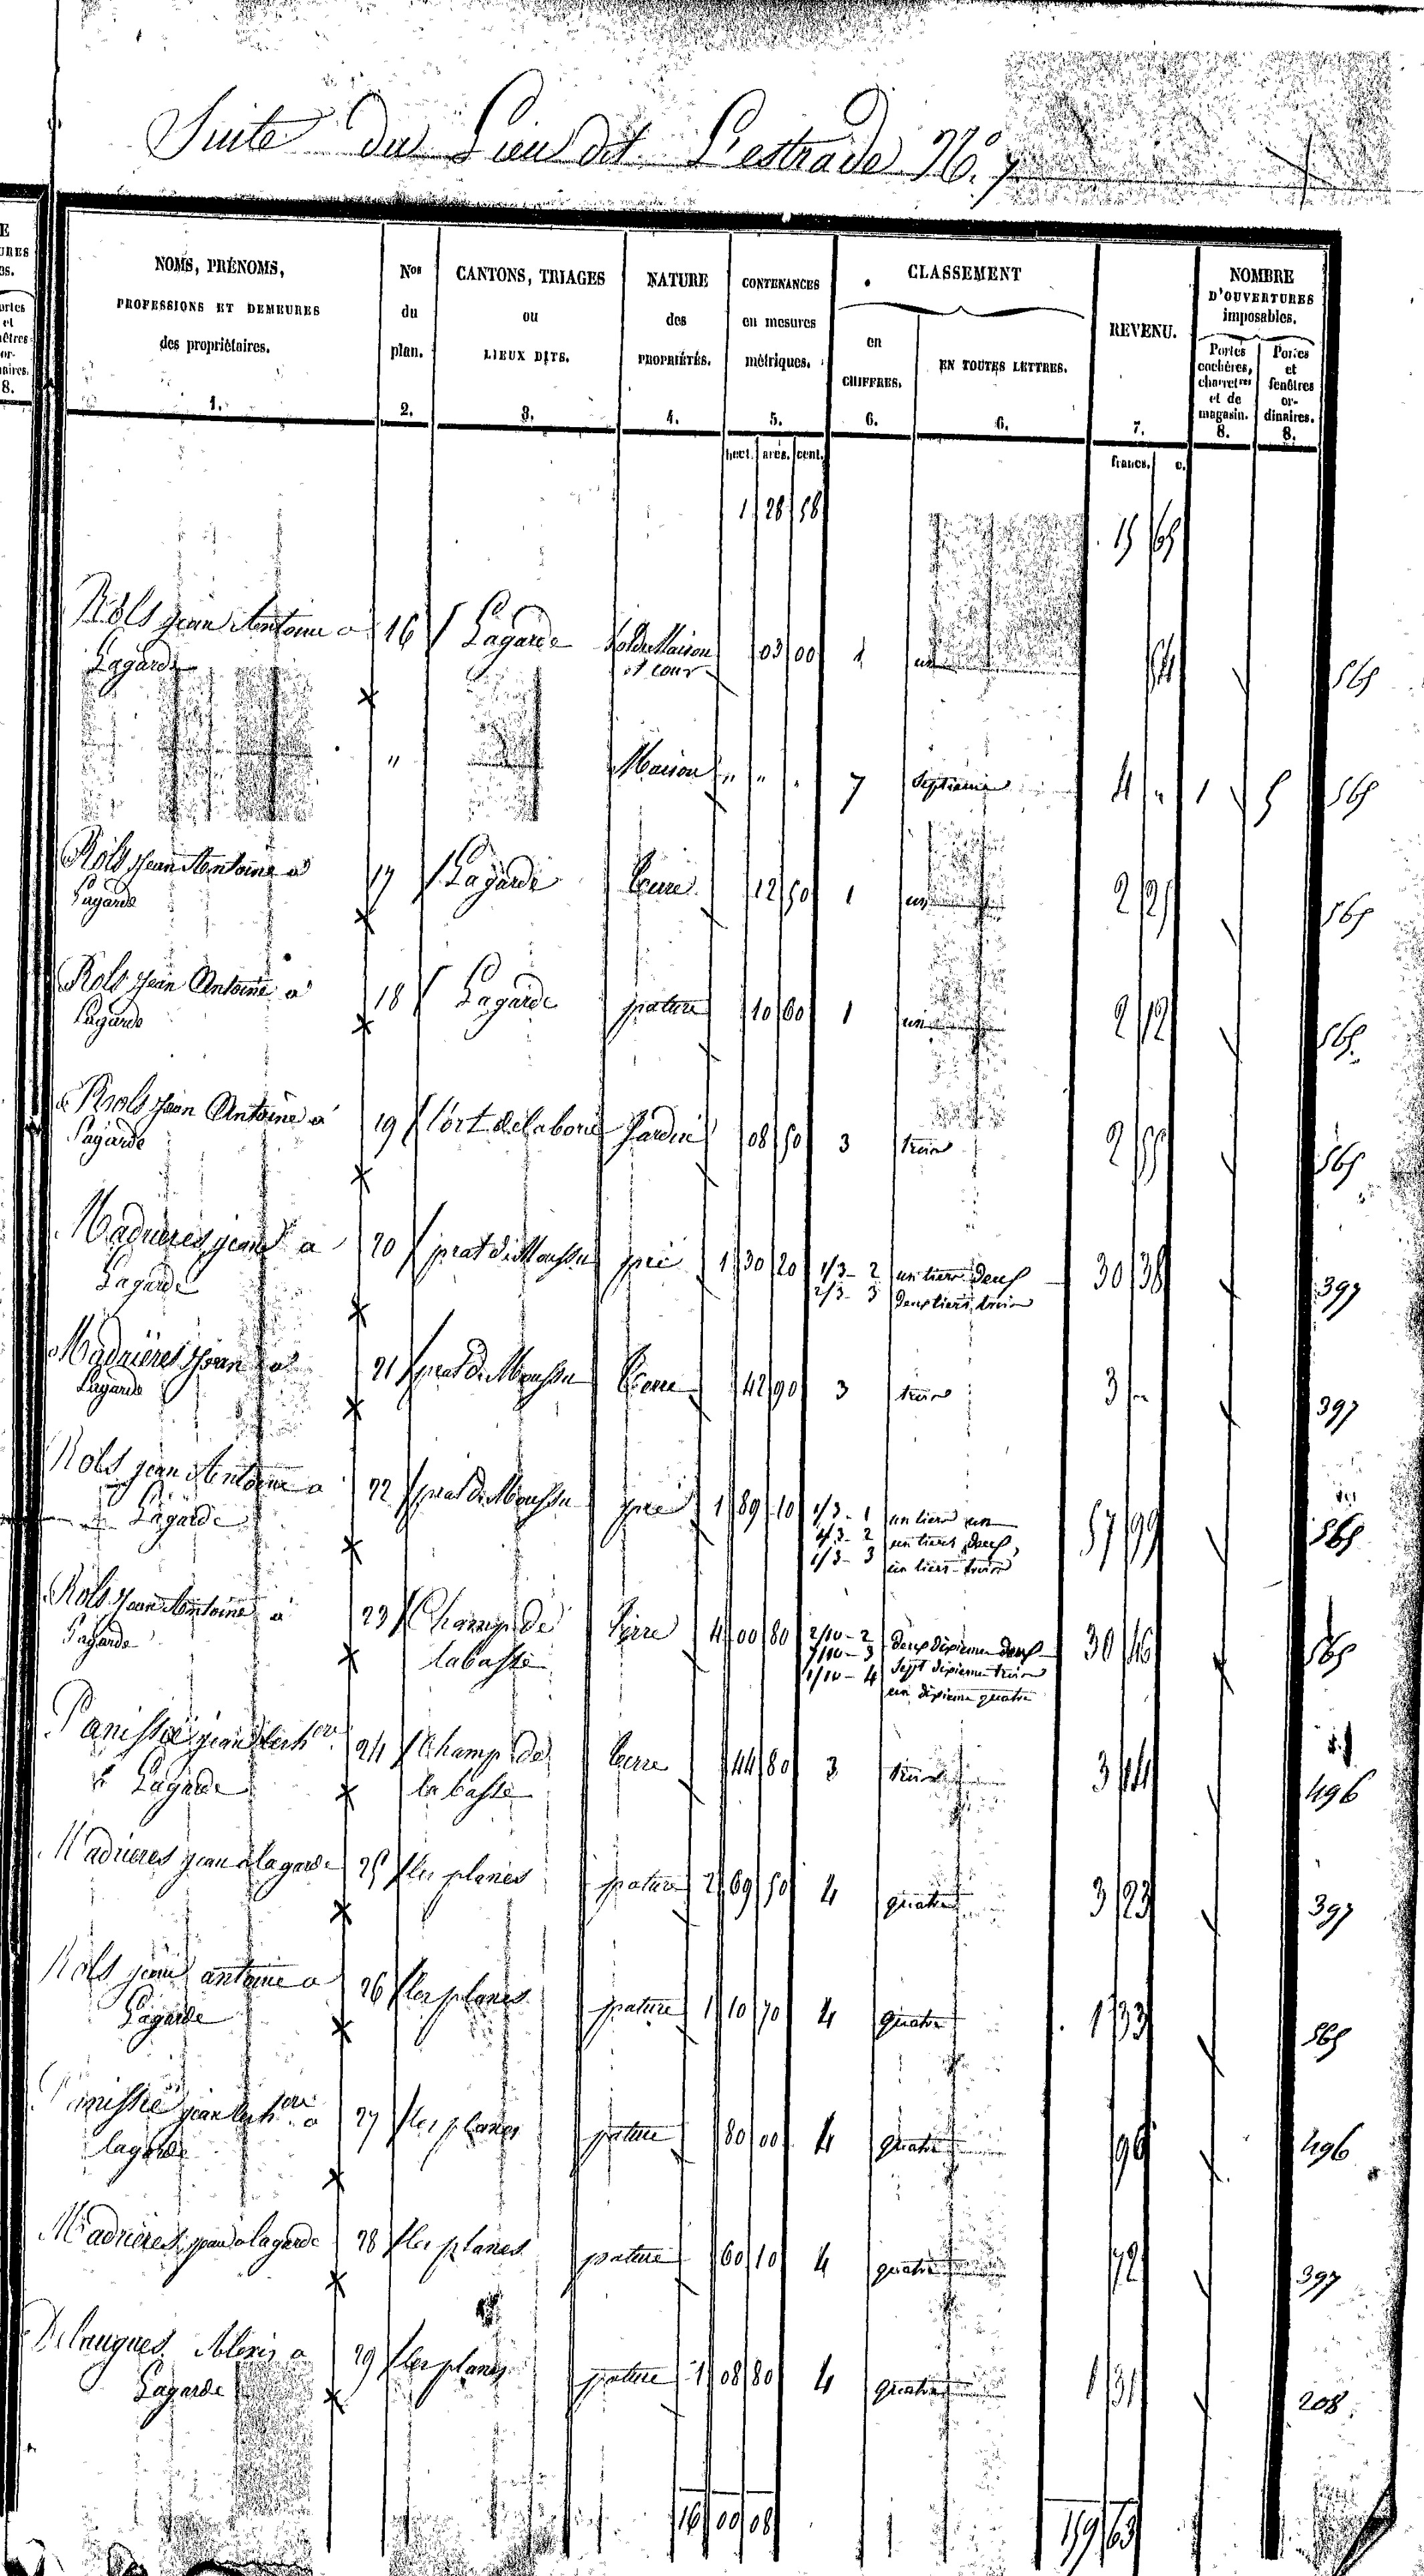 Suite du Lieu dit Lestrade No. 7
NOMS, PRÉNOMS, PROFESSIONS ET DEMEURES des propriétaires. 1.
Nos du plan. 2.
CANTONS, TRIAGES ou LIEUX DITS. 3.
NATURE des PROPRIÉTÉS. 4.
CONTENANCES en mesures métriques. 5.
CLASSEMENT
en CHIFFRES. 6.
EN TOUTES LETTRES. 6.
REVENU. 7.
NOMBRE D'OUVERTURES imposables.
Portes cochères, charretres et de magasin. 8.
Portes et fenêtres ordinaires. 8.
hect. ares. cent. francs. c.
1 28 58 15 65
Rols jean Antoine a 16 Lagarde Sol de Maison 03 00 1 un 54 565
Lagarde et cour
" Maison " " " 7 Septième 4 " 1 5 565
Rols Jean Antoine a 17 Lagarde terre 12 50 1 un 2 25 565
Lagarde
Rols Jean Antoine a 18 Lagarde pature 10 60 1 un 2 12 565
Lagarde
Rols Jean Antoine a 19 l'ort delaborie Jardin 08 50 3 trois 2 55 565
Lagarde
Madrieres jean a 20 prat de pré 1 30 20 1/3 - 2 un tiers deux 30 38 397
Lagarde 2/3 - 3 deux tiers trois
Madrieres Jean a 21 prat de terre 42 90 3 trois 3 " 397
Lagarde
Rols jean Antoine a 22 prat de pré 1 89 10 1/3 - 1 un tiers un 57 99 565
Lagarde 1/3 - 2 un tiers deux
1/3 - 3 un tiers trois
Rols Jean Antoine a 23 Champ de terre 4 00 80 2/10 - 2 deux dixieme deux 30 46 565
Lagarde labasse 7/10 - 3 Sept dixieme trois
1/10 - 4 un dixieme quatre
Panissié jean 24 Champ de terre 44 80 3 trois 3 14 496
a Lagarde la basse
Madrieres jean a lagarde 25 les planes pature 2 69 50 4 quatre 3 23 397
Rols jean antoine a 26 les planes pature 1 10 70 4 quatre 1 33 565
Lagarde
Panissié jean a 27 les planes pature 80 00 4 quatre 96 496
lagarde
Madrieres jean a lagarde 28 les planes pature 60 10 4 quatre 72 397
Delauques Alexis a 29 les planes pature 1 08 80 4 quatre 1 31 208
Lagarde
16 00 08 159 63